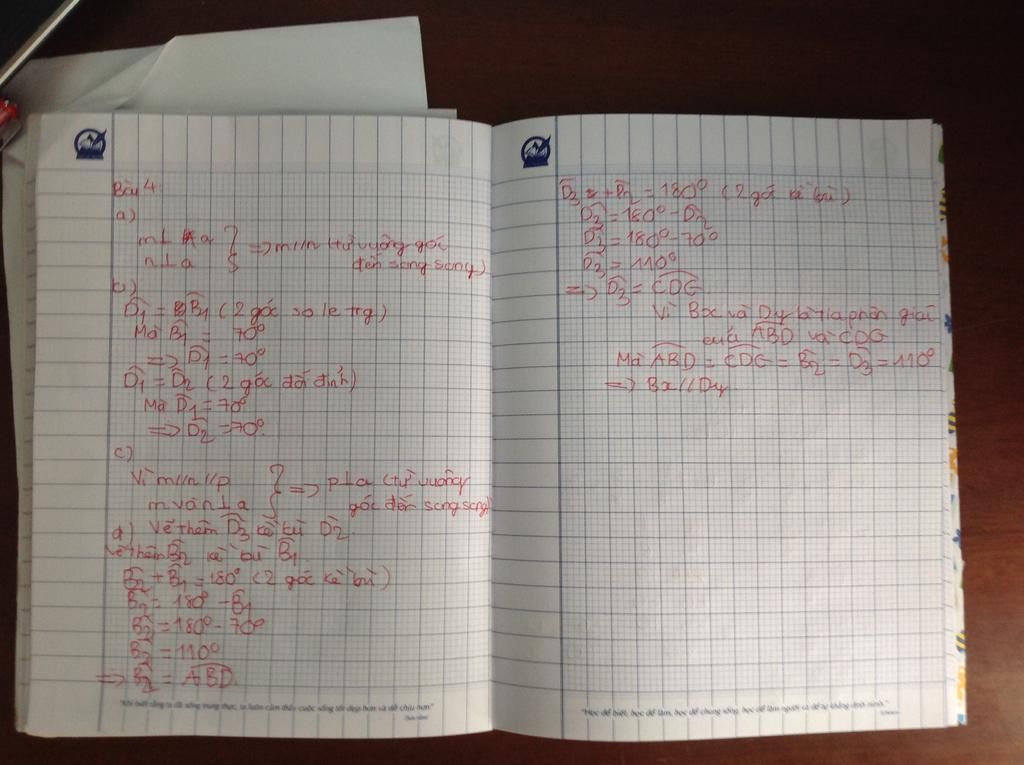 Bài 4
a)
m⊥ a
n⊥a } => m//n (từ vuông góc
đến song song)
b)
D̂1 = B̂1 (2 góc so le trg)
Mà B̂1 = 70°
=> D̂1 = 70°
D̂1 = D̂2 (2 góc đối đỉnh)
Mà D̂1 = 70°
=> D̂2 = 70°.
c)
Vì m//n//p
m và n⊥a } => p⊥a (từ vuông
góc đến song song)
d) Vẽ thêm D̂3 kề bù D̂2.
Vẽ thêm B̂2 kề bù B̂1
B̂2 + B̂1 = 180° (2 góc kề bù)
B̂2 = 180° - B̂1
B̂2 = 180° - 70°
B̂2 = 110°
=> B̂2 = ABD.
"Khi biết rằng ta đã sống trung thực, ta luôn cảm thấy cuộc sống tốt đẹp hơn và dễ chịu hơn"
D̂3 + D̂2 = 180° (2 góc kề bù)
D̂3 = 180° - D̂2
D̂3 = 180° - 70°
D̂3 = 110°
=> D̂3 = CDG
Vì Bx và Dy là tia phân giác
của ABD và CDG
Mà ABD = CDG = B̂2 = D̂3 = 110°
=> Bx//Dy
"Học để biết, học để làm, học để chung sống, học để làm người và để tự khẳng định mình."